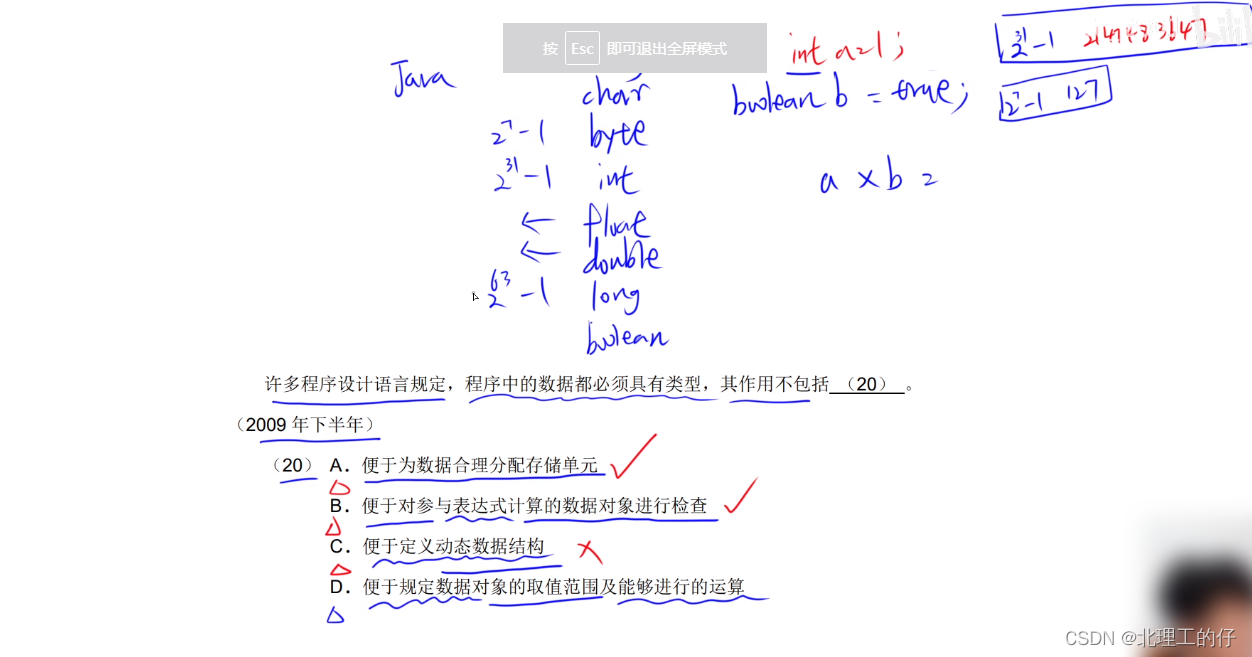 按 Esc 即可退出全屏模式
int a=1;
2^31-1 2147483147
Java
char
boolean b = true;
2^7-1 127
2^7-1 byte
2^31-1 int
a × b =
← float
← double
2^63-1 long
boolean
许多程序设计语言规定，程序中的数据都必须具有类型，其作用不包括 （20） 。
（2009 年下半年）
（20） A．便于为数据合理分配存储单元
B．便于对参与表达式计算的数据对象进行检查
C．便于定义动态数据结构
D．便于规定数据对象的取值范围及能够进行的运算
CSDN @北理工的仔